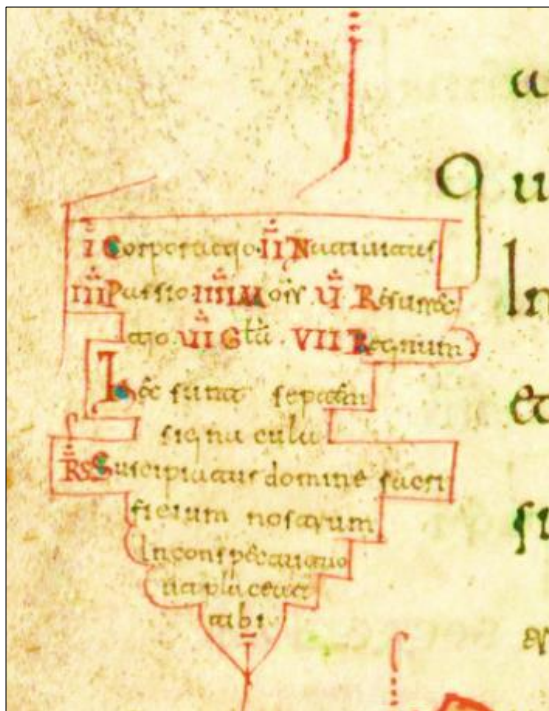 I Corporatio II Natiuitas
Passio Mors VI Resurrec
tio VII Gla VII Regnum
Hec sunt septem
signacula
RS Suscipiatur domine sacri
ficium nostrum
In conspectu tuo
ut placeat
tibi